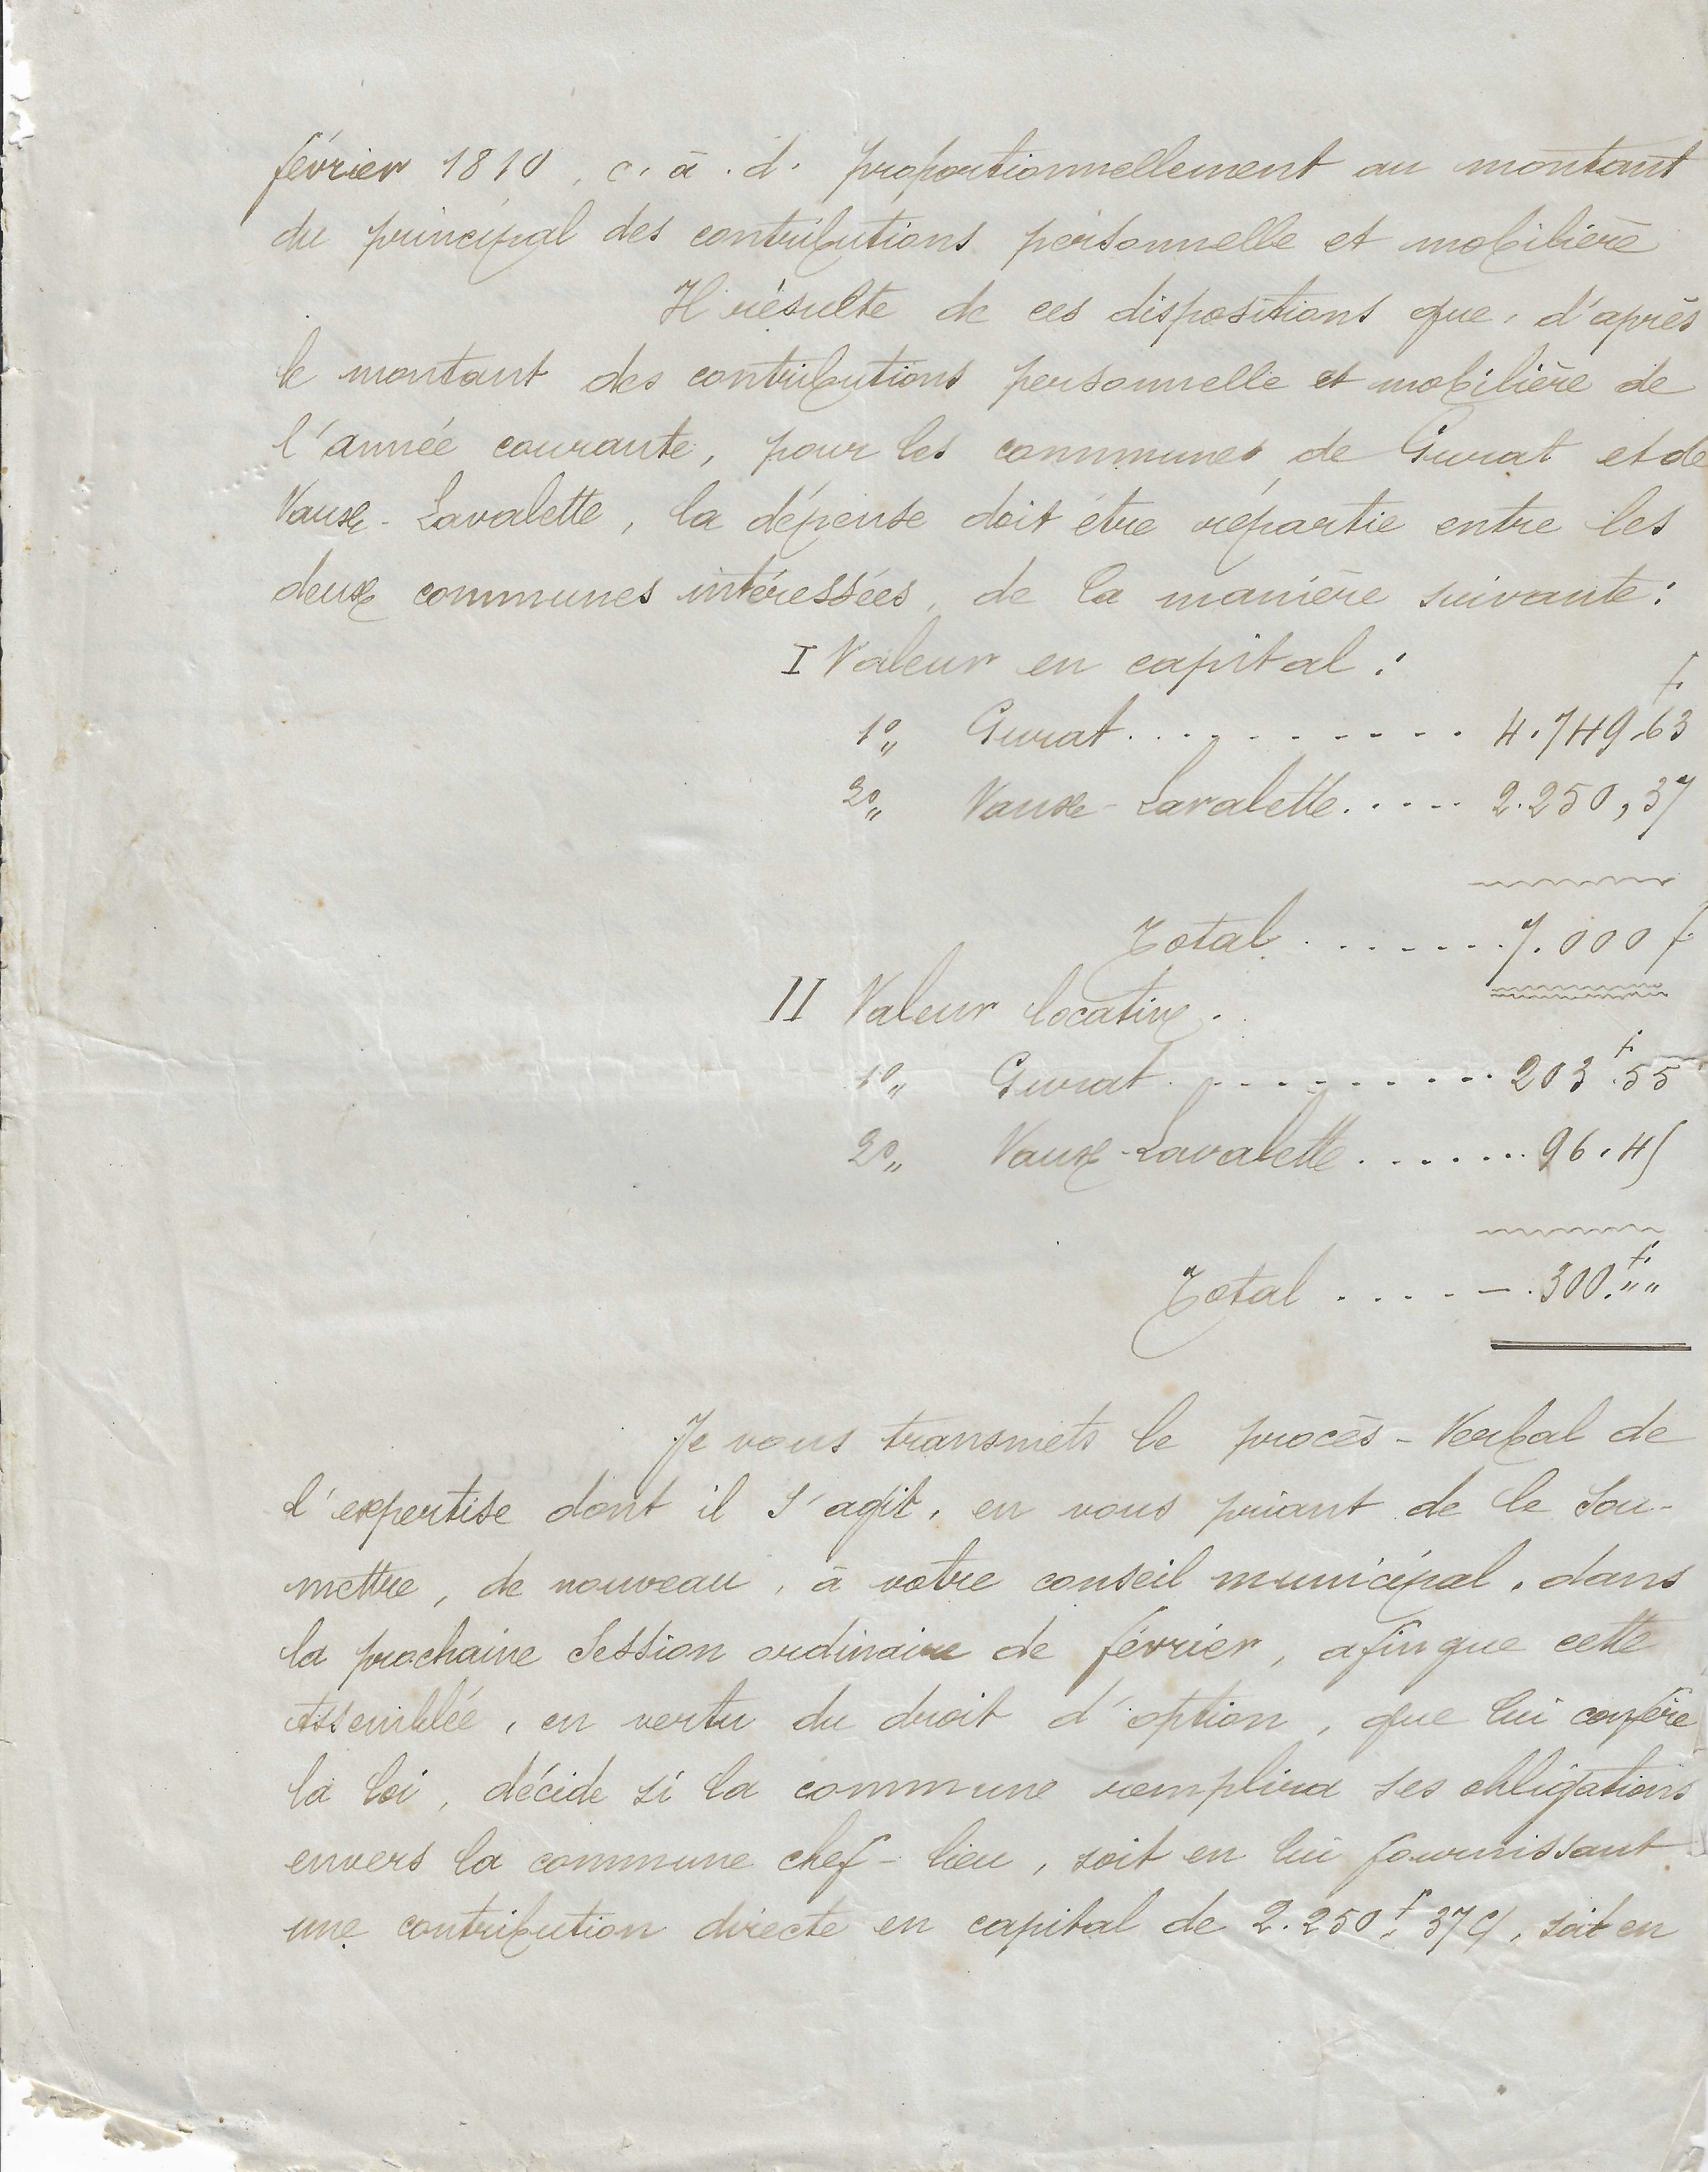 février 1810, c. à. d. proportionnellement au montant
du principal des contributions personnelle et mobilière
Il résulte de ces dispositions que, d'après
le montant des contributions personnelle et mobilière de
l'année courante, pour les communes de Gurat et de
Vaux-Lavalette, la dépense doit être répartie entre les
deux communes intéressées, de la manière suivante:
I Valeur en capital:
1°„ Gurat........... 4.749f.63
2°„ Vaux-Lavalette..... 2.250,37
Total....... 7.000f
II Valeur locative.
1°„ Gurat.......... 203f.55
2°„ Vaux-Lavalette....... 96.45
Total.....300f.„„
Je vous transmets le procès-Verbal de
l'expertise dont il s'agit, en vous priant de le sou-
mettre, de nouveau, à votre conseil municipal, dans
la prochaine session ordinaire de février, afin que cette
Assemblée, en vertu du droit d'option, que lui confère
la loi, décide si la commune remplira ses obligations
envers la commune chef-lieu, soit en lui fournissant
une contribution directe en capital de 2.250f. 37c/, soit en